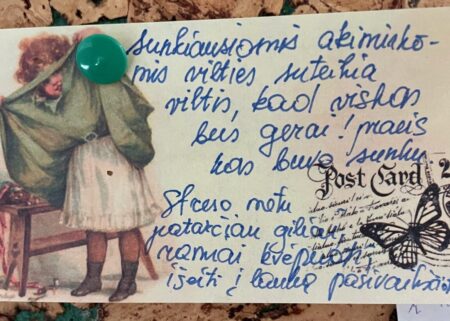 sunkiausiomis akimirko-
mis vilties suteikia
viltis, kad viskas
bus gerai! praeis
kas buvo sunku
Post Card 2
Streso metu
patarčiau giliai
ramiai kvėpuoti
išeiti į lauką pasivaikščioti